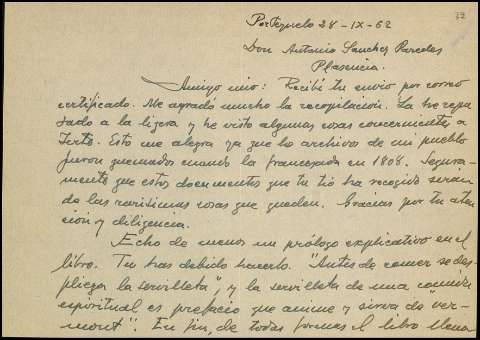 32
Portezuelo 28-IX-62
Don Antonio Sanchez Paredes
Plasencia.
Amigo mio: Recibí tu envio por correo
certificado. Me agradó mucho la recopilacion. La he repa
sado a la ligera y he visto algunas cosas concernientes a
Esto me alegra ya que los archivos de mi pueblo
fueron quemados cuando la francesada en 1808. Segura-
mente que estos documentos que tu tio ha recogido serian
de las rarisimas cosas que queden. Gracias por tu aten
cion y diligencia.
Echo de menos un prólogo explicativo en el
libro. Tu has debido hacerlo. "Antes de comer se des-
pliega la servilleta", y la servilleta de una comida
espiritual es prefacio que anime y sirva de "ver-
mout". En fin, de todas formas el libro llena